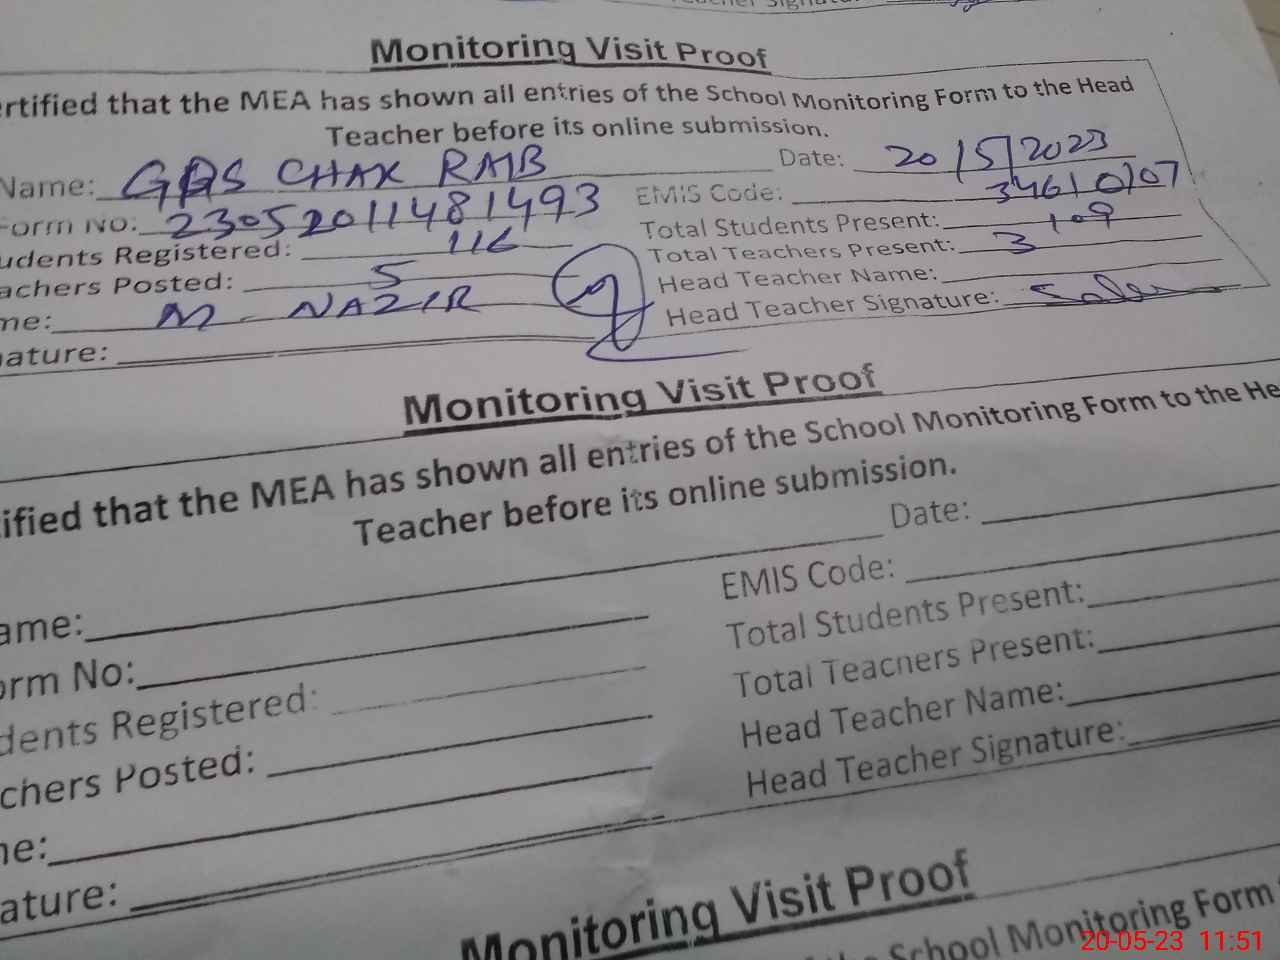 Monitoring Visit Proof
ertified that the MEA has shown all entries of the School Monitoring Form to the Head
Teacher before its online submission.
Name: GPS CHAK RAIB Date: 20/5/2023
Form No: 23052011481493 EMIS Code: 34610107
udents Registered: 116 Total Students Present: 109
achers Posted: 5 Total Teachers Present: 3
me: M. NAZIR Head Teacher Name:
nature: Head Teacher Signature:
Monitoring Visit Proof
ified that the MEA has shown all entries of the School Monitoring Form to the He
Teacher before its online submission.
ame: Date:
orm No: EMIS Code:
dents Registered: Total Students Present:
chers Posted: Total Teachers Present:
ne: Head Teacher Name:
ature: Head Teacher Signature:
Monitoring Visit Proof
School Monitoring Form
20-05-23 11:51